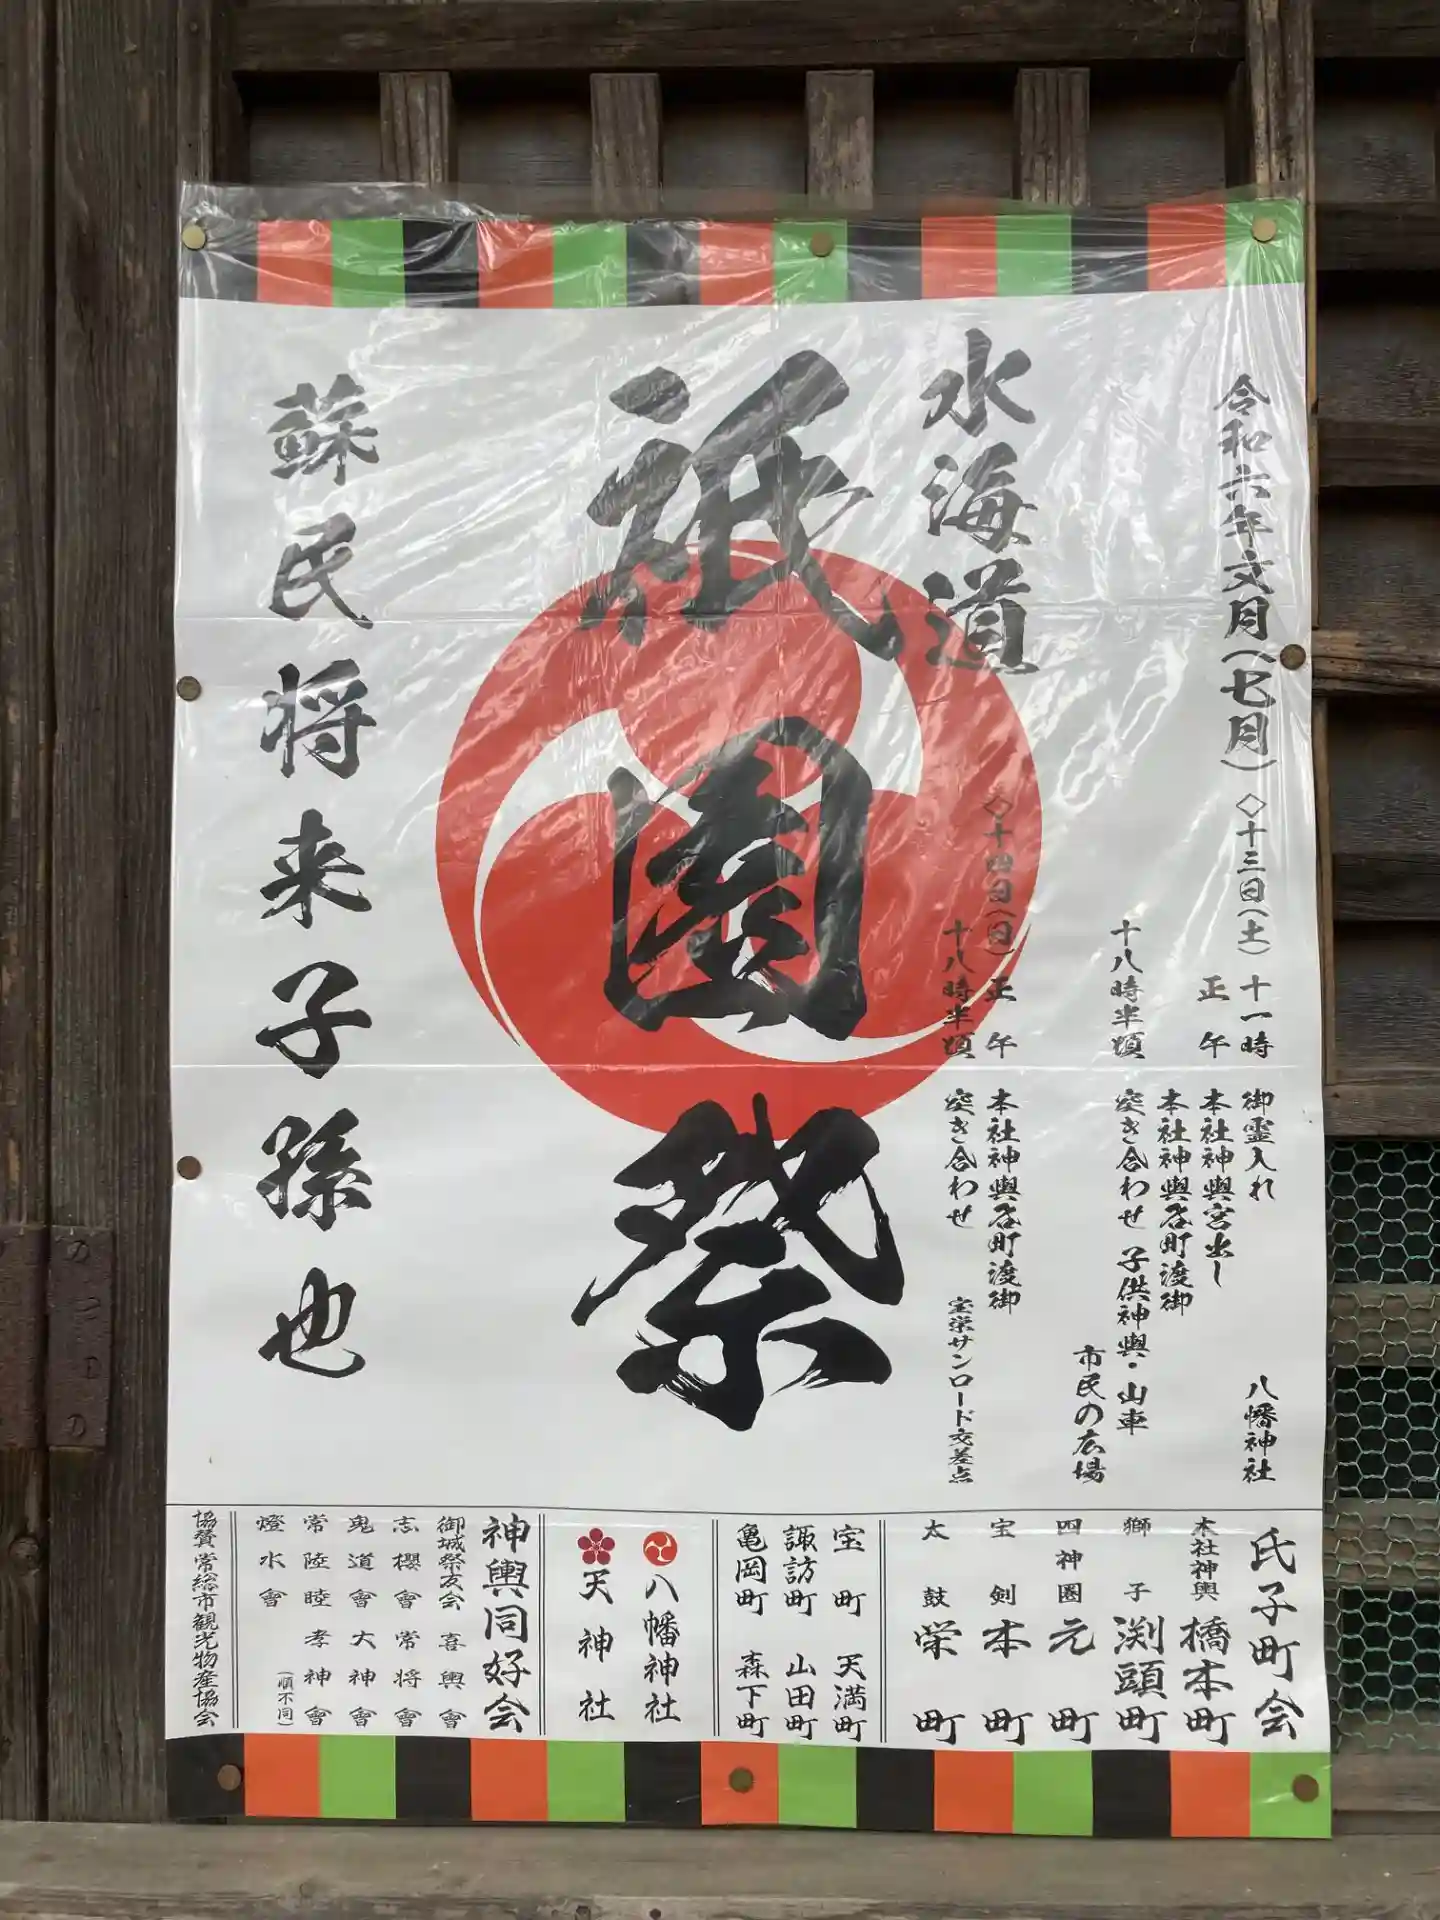 令和六年文月(七月)
◇十三日(土) 十一時 御霊入れ 八幡神社
正午 本社神輿宮出し
本社神輿各町渡御
十八時半頃 突き合わせ 子供神輿・山車
市民の広場
◇十四日(日) 正午 本社神輿各町渡御
十八時半頃 突き合わせ 宝栄サンロード交差点
水海道
祇園祭
蘇民将来子孫也
氏子町会
本社神輿 橋本町
獅子 渕頭町
四神圏 元町
宝剣 本町
太鼓 栄町
宝町 天満町
諏訪町 山田町
亀岡町 森下町
八幡神社
天神社
神輿同好会
御城祭友会 喜輿會
志櫻會 常将會
鬼道會 大神會
常陸睦 孝神會
燈水會 (順不同)
協賛 常総市観光物産協会